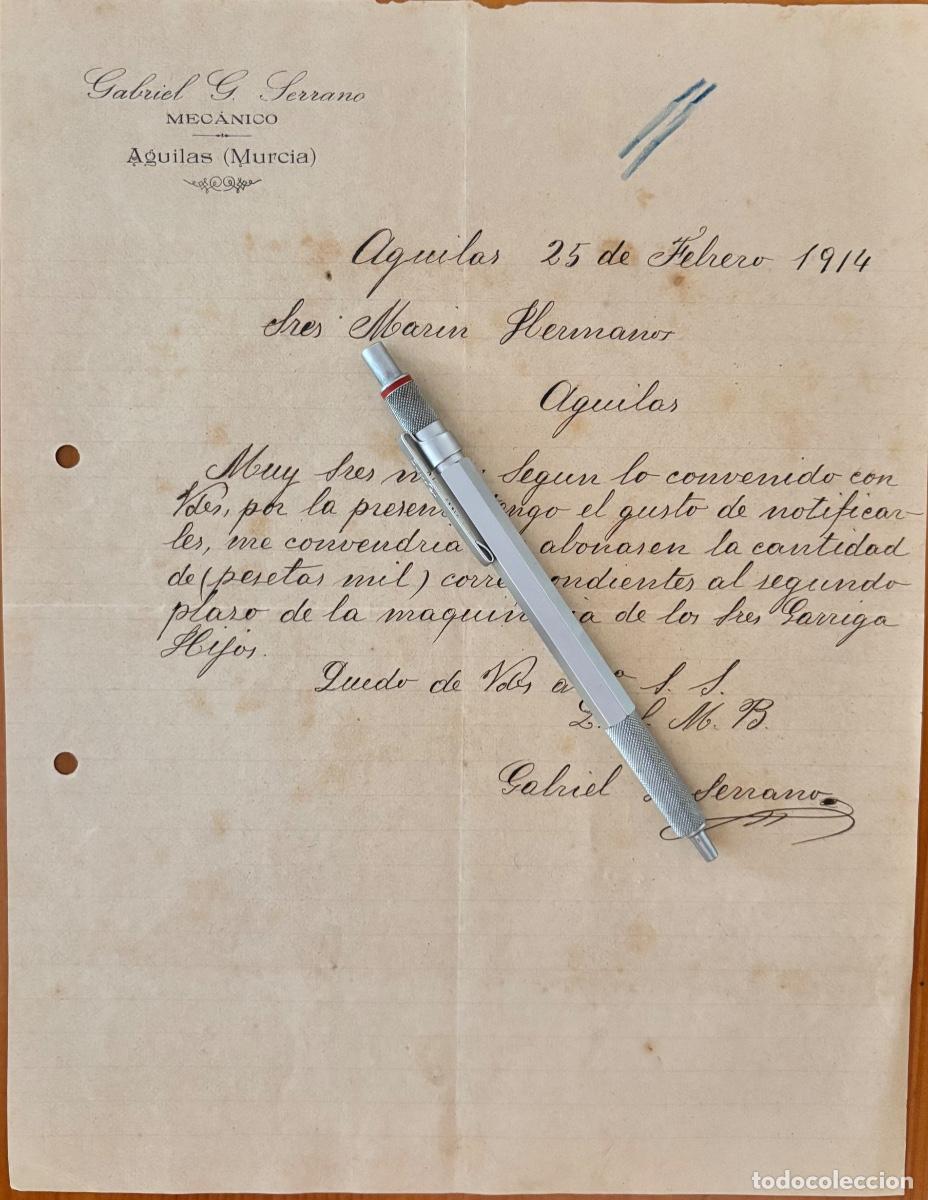 Gabriel G. Serrano
MECÁNICO
Aguilas (Murcia)
Aguilas 25 de Febrero 1914
Sres Marin Hermanos
Aguilas
Muy Sres Segun lo convenido con
Vdes, por la el gusto de notificar-
les, me convendria abonasen la cantidad
de (pesetas mil) al segundo
plaso de la de los Sres Garriga
Hijos.
Quedo de Vdes S. S.
M. B.
Gabriel Serrano
todocoleccion